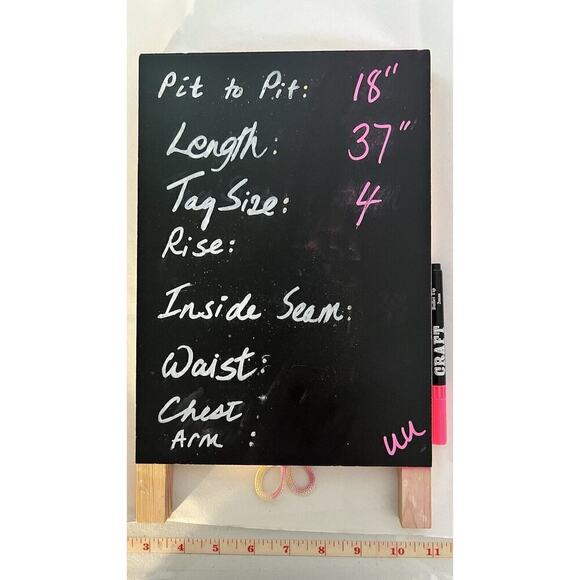 Pit to Pit: 18"
Length: 37"
Tag Size: 4
Rise:
Inside Seam:
Waist:
Chest
Arm :
CRAFT
3 4 5 6 7 8 9 10 11